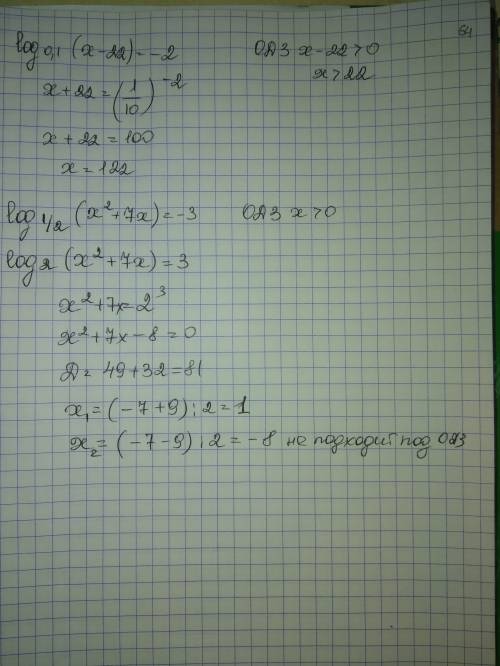 log₀,₁ (x-22) = -2 ОДЗ x-22>0
x>22
x+22 = (1/10)⁻²
x+22 = 100
x = 122
log₁/₂ (x²+7x) = -3 ОДЗ x>0
log₂ (x²+7x) = 3
x²+7x=2³
x²+7x-8=0
Д= 49+32=81
x₁= (-7+9):2=1
x₂= (-7-9):2= -8 не подходит под ОДЗ